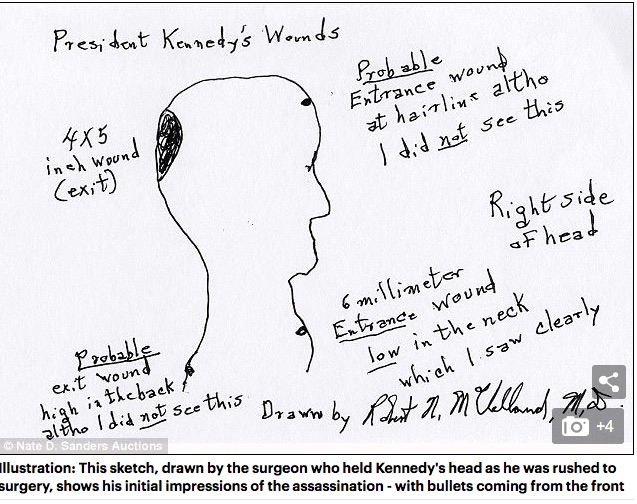 President Kennedy's Wounds
Probable
Entrance wound
at hairline altho
I did not see this
4X5
inch wound
(exit)
Right side
of head
6 millimeter
Entrance wound
low in the neck
which I saw clearly
Probable
exit wound
high in the back
altho I did not see this
Drawn by Robert N. McClelland, M.D.
© Nate D. Sanders Auctions
+4
Illustration: This sketch, drawn by the surgeon who held Kennedy's head as he was rushed to
surgery, shows his initial impressions of the assassination - with bullets coming from the front